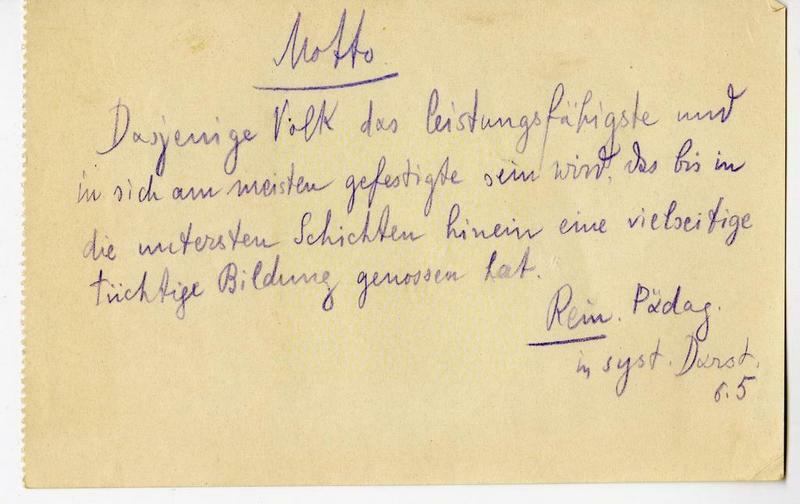 Motto
Dasjenige Volk das leistungsfähigste und
in sich am meisten gefestigte sein wird, das bis in
die untersten Schichten hinein eine vielseitige
tüchtige Bildung genossen hat.
Rein. Pädag.
in syst. Darst.
6.5